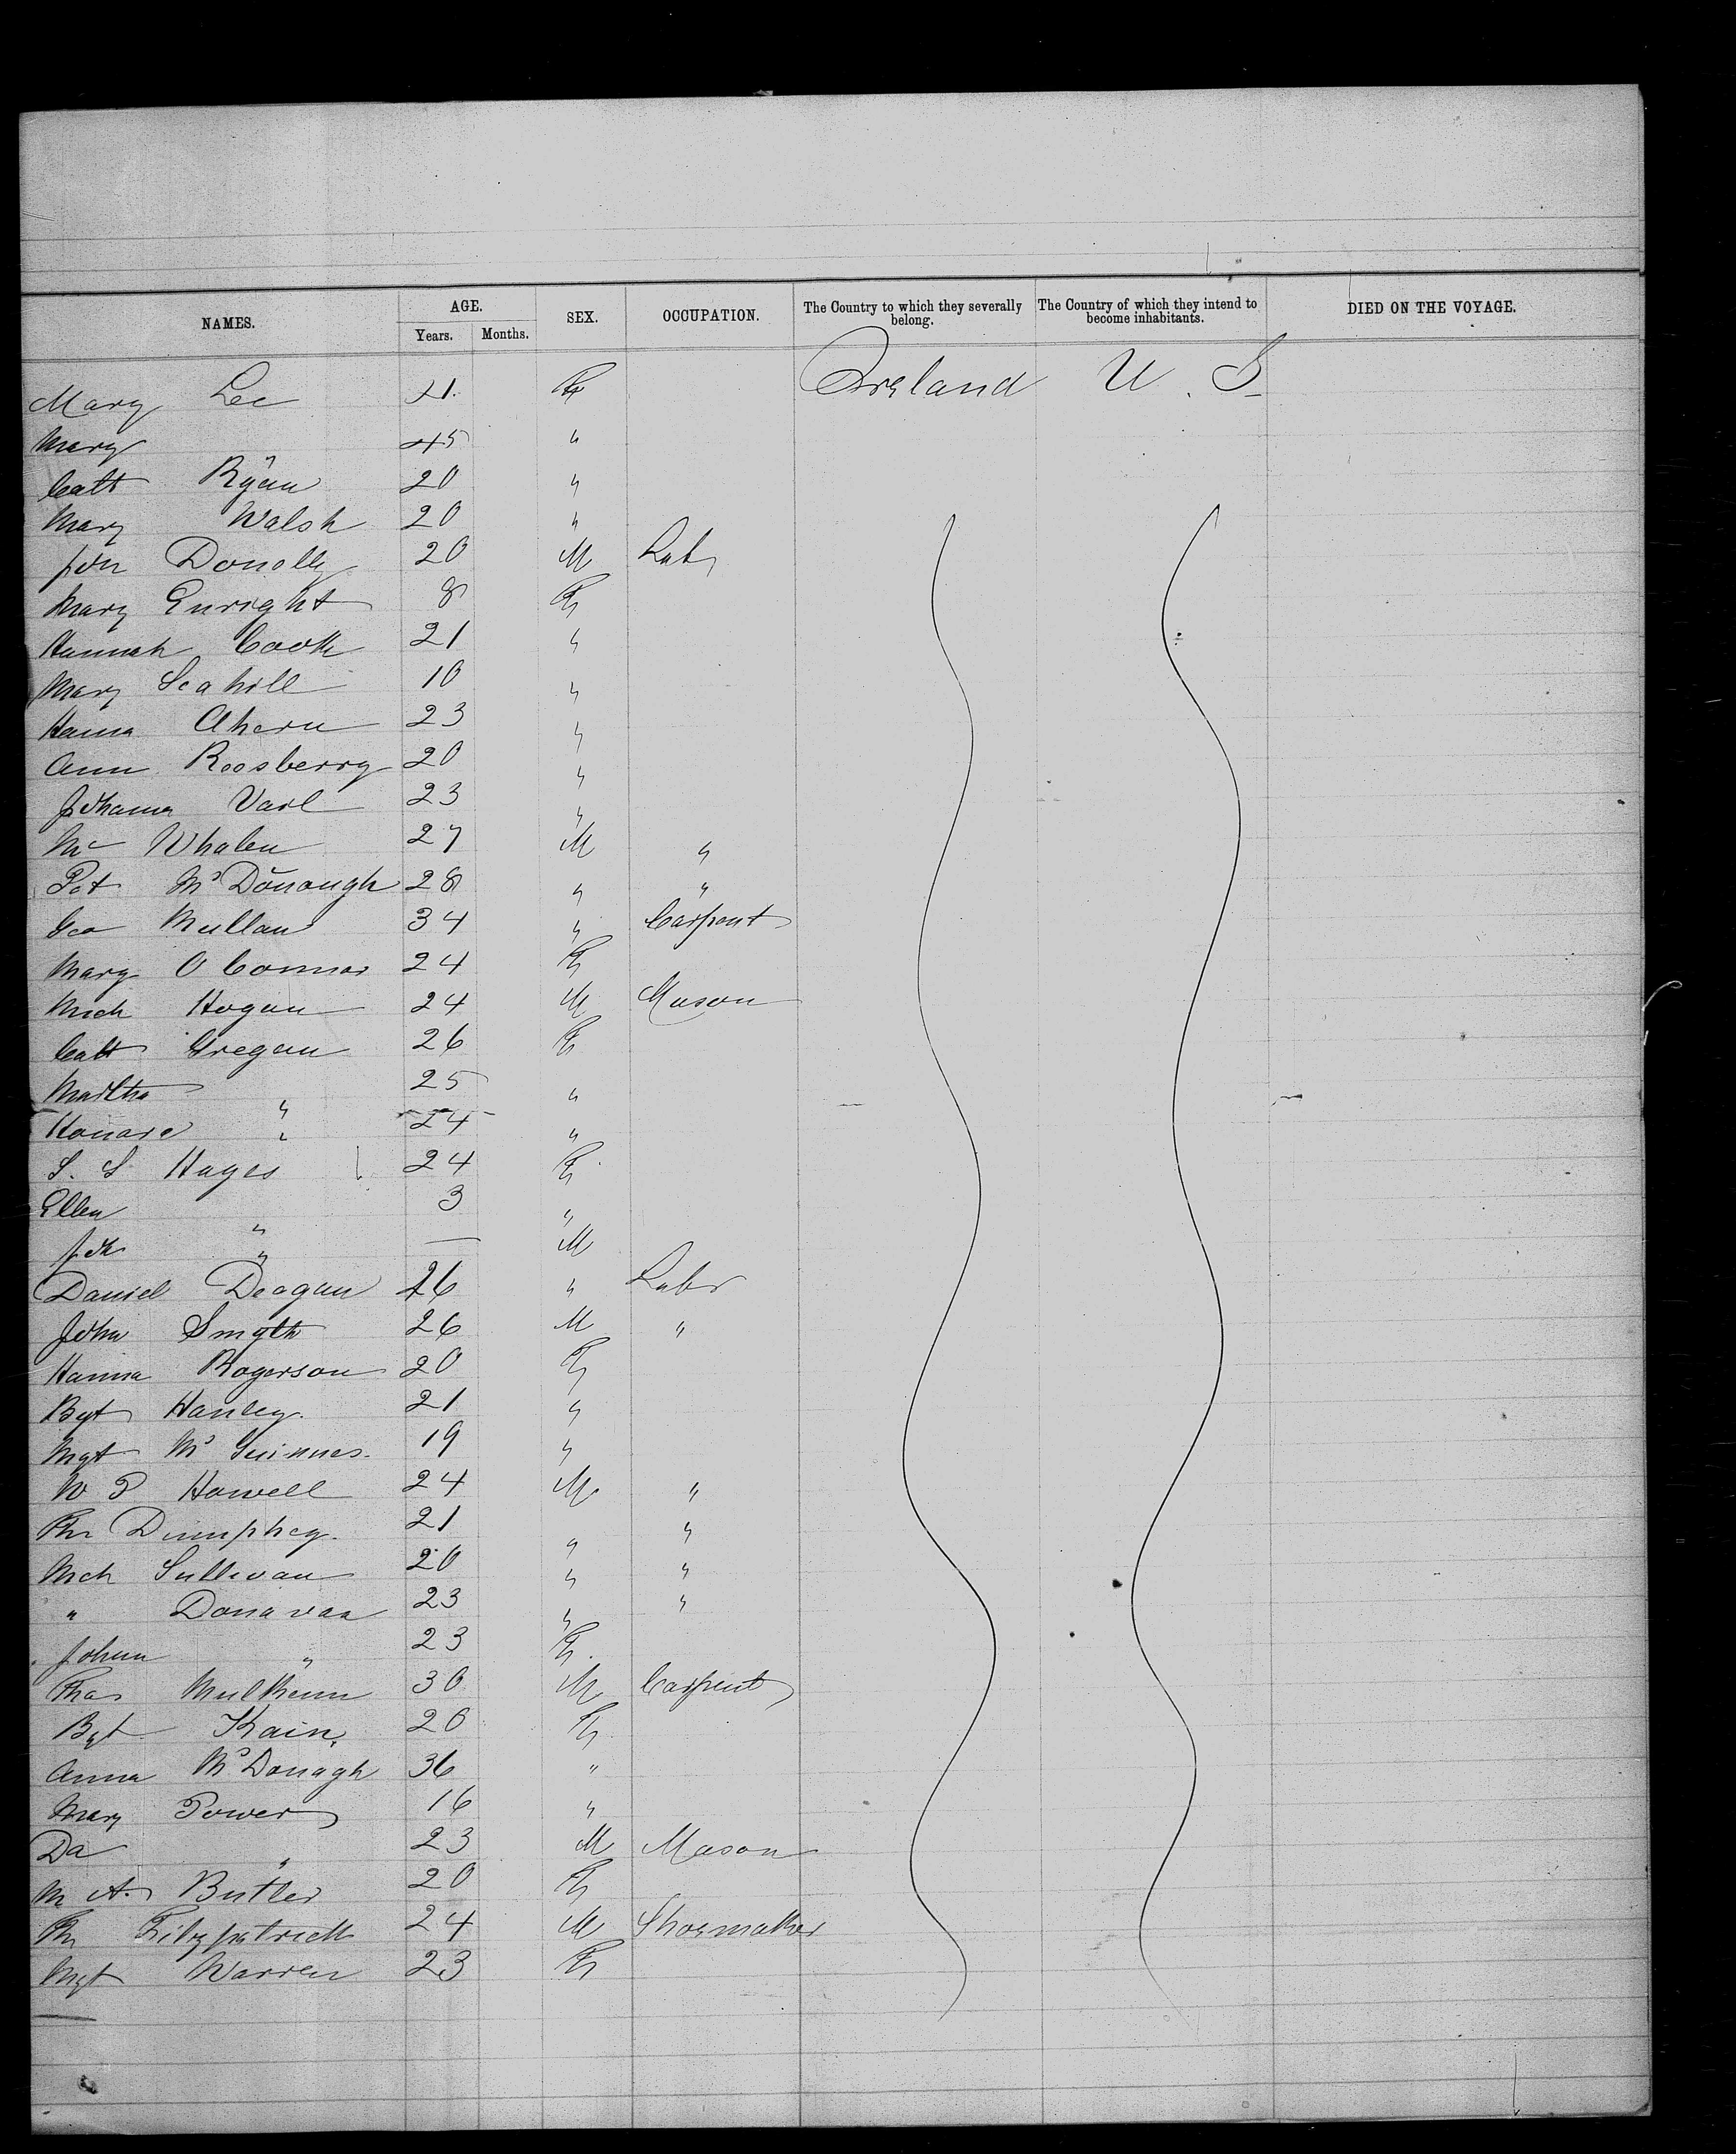 NAMES. AGE. Years. Months. SEX. OCCUPATION. The Country to which they severally belong. The Country of which they intend to become inhabitants. DIED ON THE VOYAGE.
Mary Lee 21. F Ireland U.S.
Mary 45 "
Cath Ryan 20 "
Mary Walsh 20 "
Jon Donolly 20 M Labr
Mary Enright 8 F
Hannah Cook 21 "
Mary Scahill 10 "
Hanna Ahern 23 "
Ann Roosberry 20 "
Johanna Vail 23 "
Mc Whalen 27 M "
Pat McDonough 28 " "
Geo Mullan 34 " Carpent
Mary O Connor 24 F
Mich Hogan 24 M Mason
Cath Gregan 26 F
Martha " 25 "
Honora " 24 "
S. S Hayes 24 F
Ellen " 3 "
Joh " — M
Daniel Deagan 26 " Labr
John Smyth 26 M "
Hanna Rogerson 20 F
Bgt Hanley. 21 "
Mgt Mc Guinnes. 19 "
W P Howell 24 M "
Th Dumphey. 21 " "
Mch Sullivan 20 " "
" Donavan 23 " "
Johan " 23 F.
Thos Mulkenn 30 M Carpent
Bgt Kain. 20 F
Anna McDonagh 36 "
Mary Power 16 "
Da " 23 M Mason
M A. Butler 20 F
Th Fitzpatrick 24 M Shoemaker
Mgt Warren 23 F